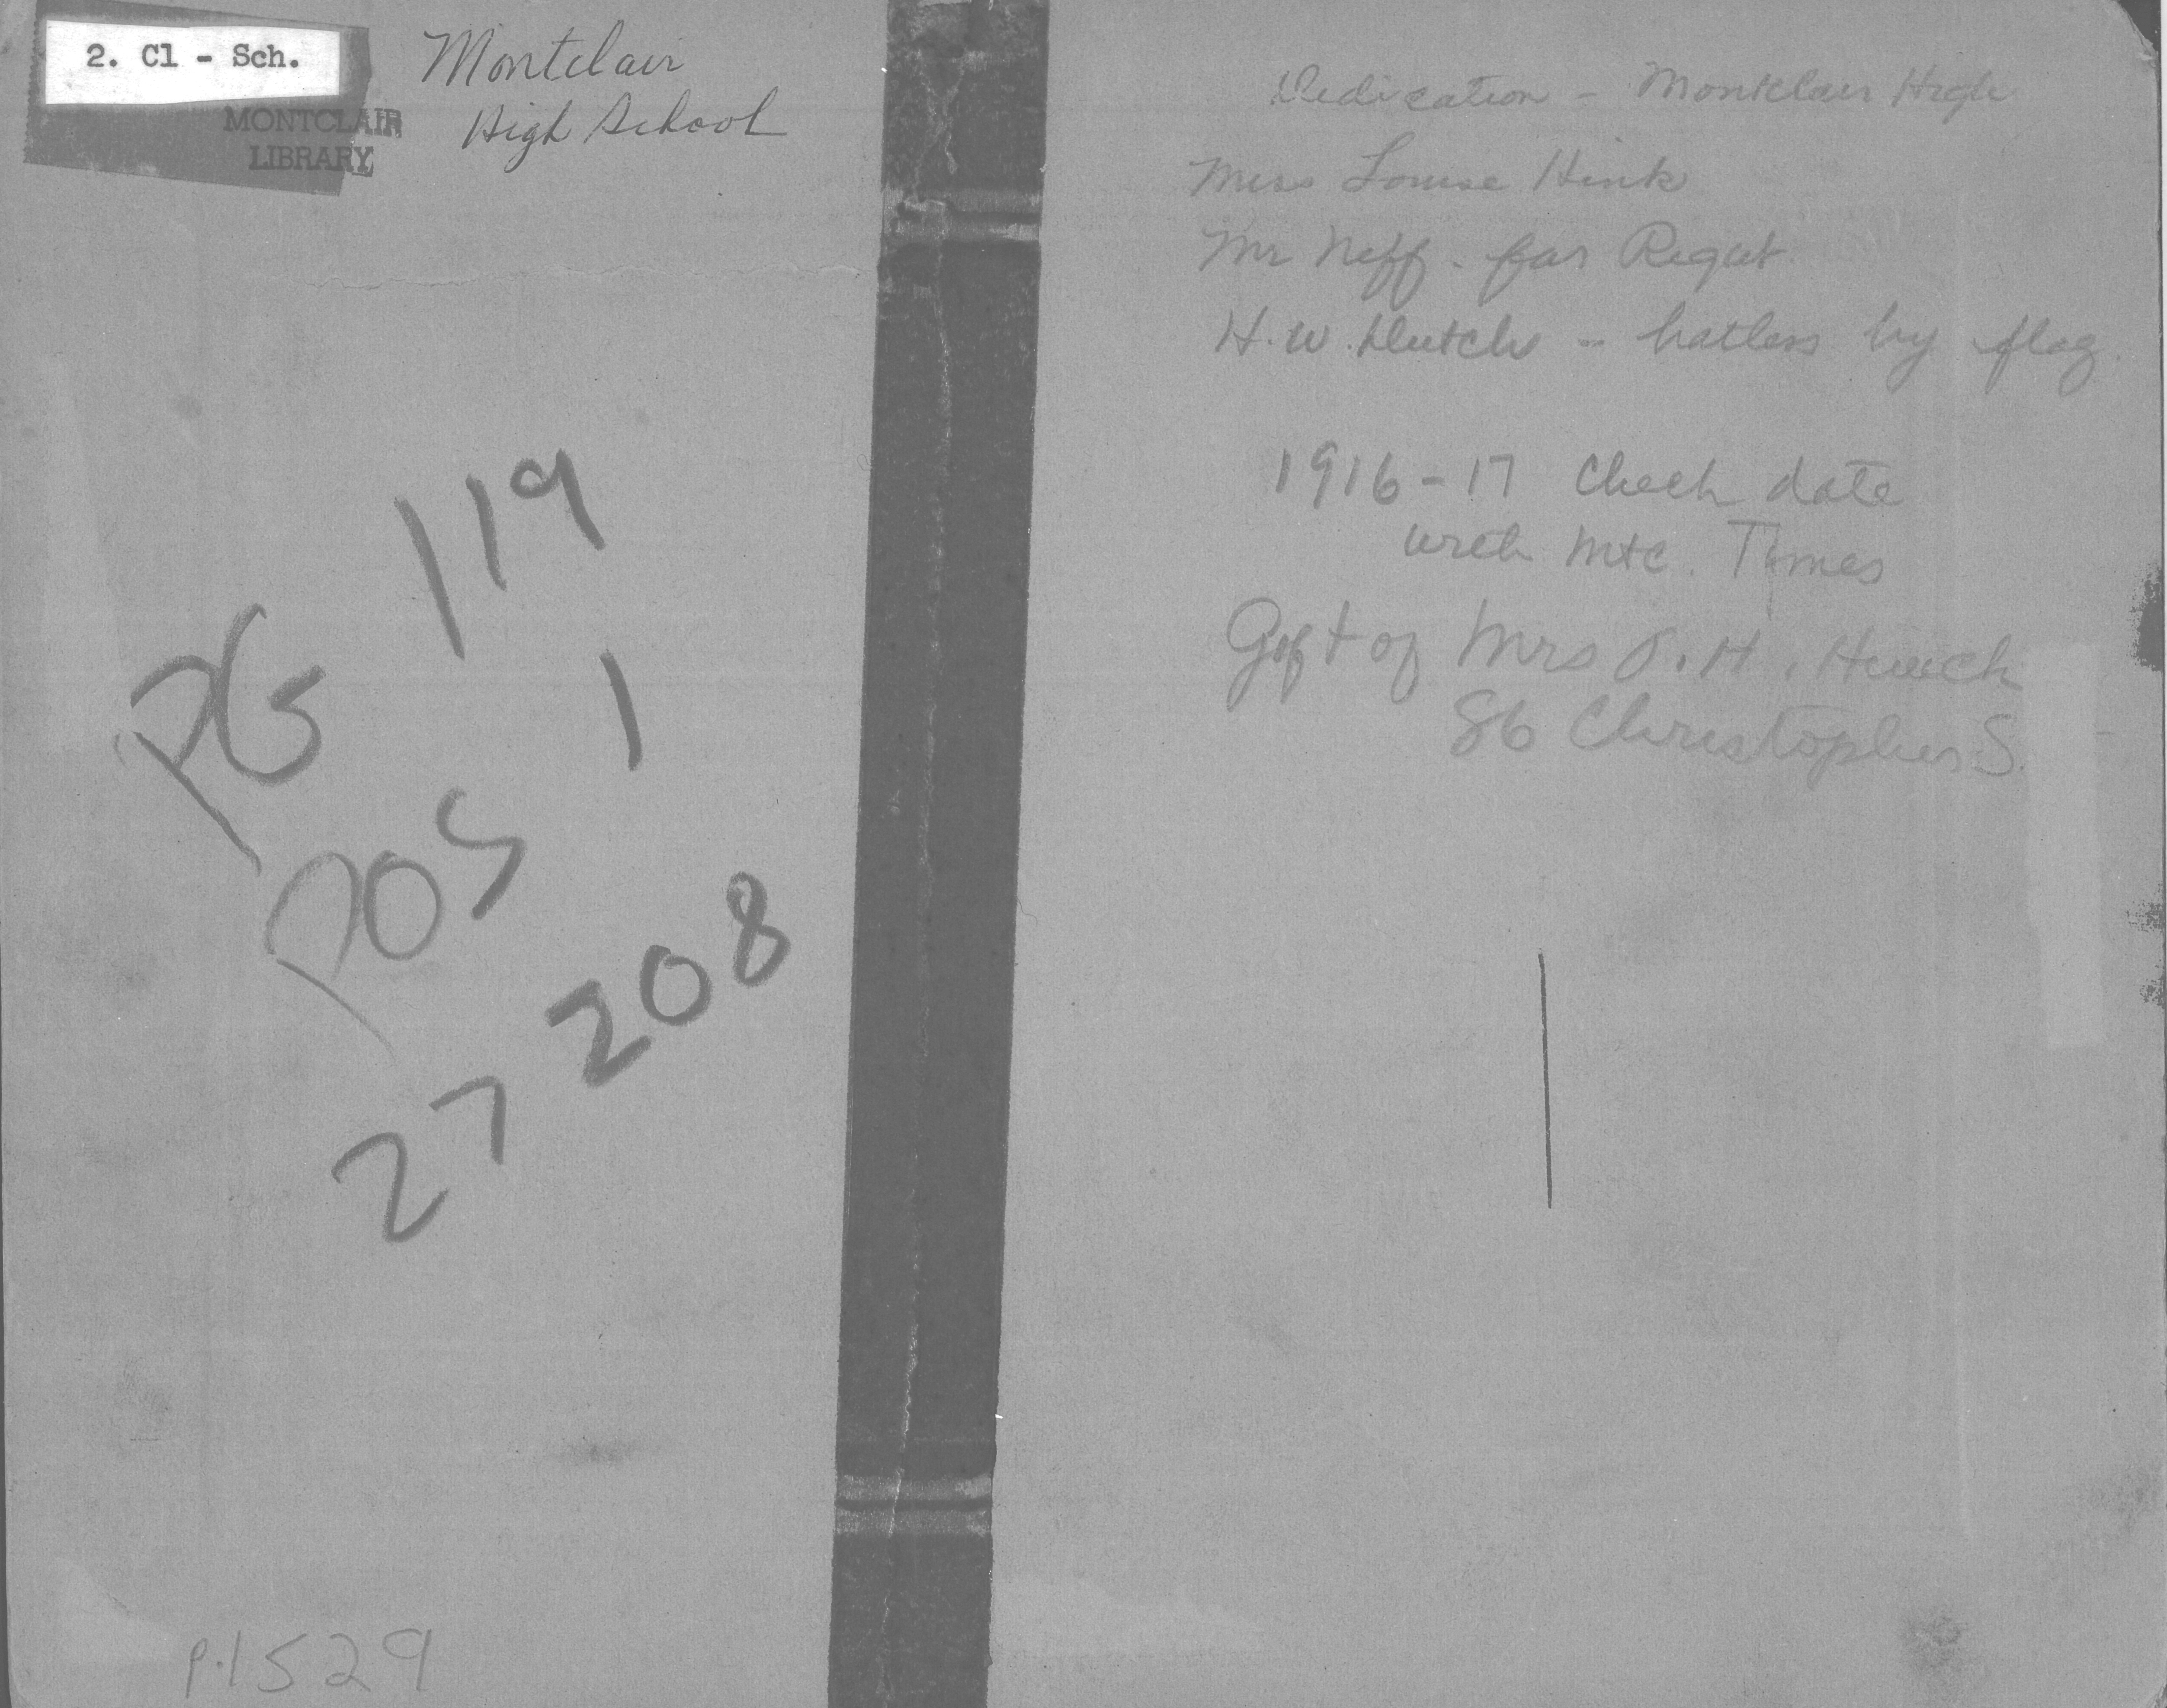 2. Cl - Sch.
MONTCLAIR
LIBRARY
Montclair
High School
PG 119
POS 1
27 208
P.1529
Dedication - Montclair High
Miss Louise Hink
Mr Neff - far Right
H.W. Dutch - hatless by flag.
1916-17 Check date
with Mtc. Times
Gift of Mrs H.
86 Christopher S.